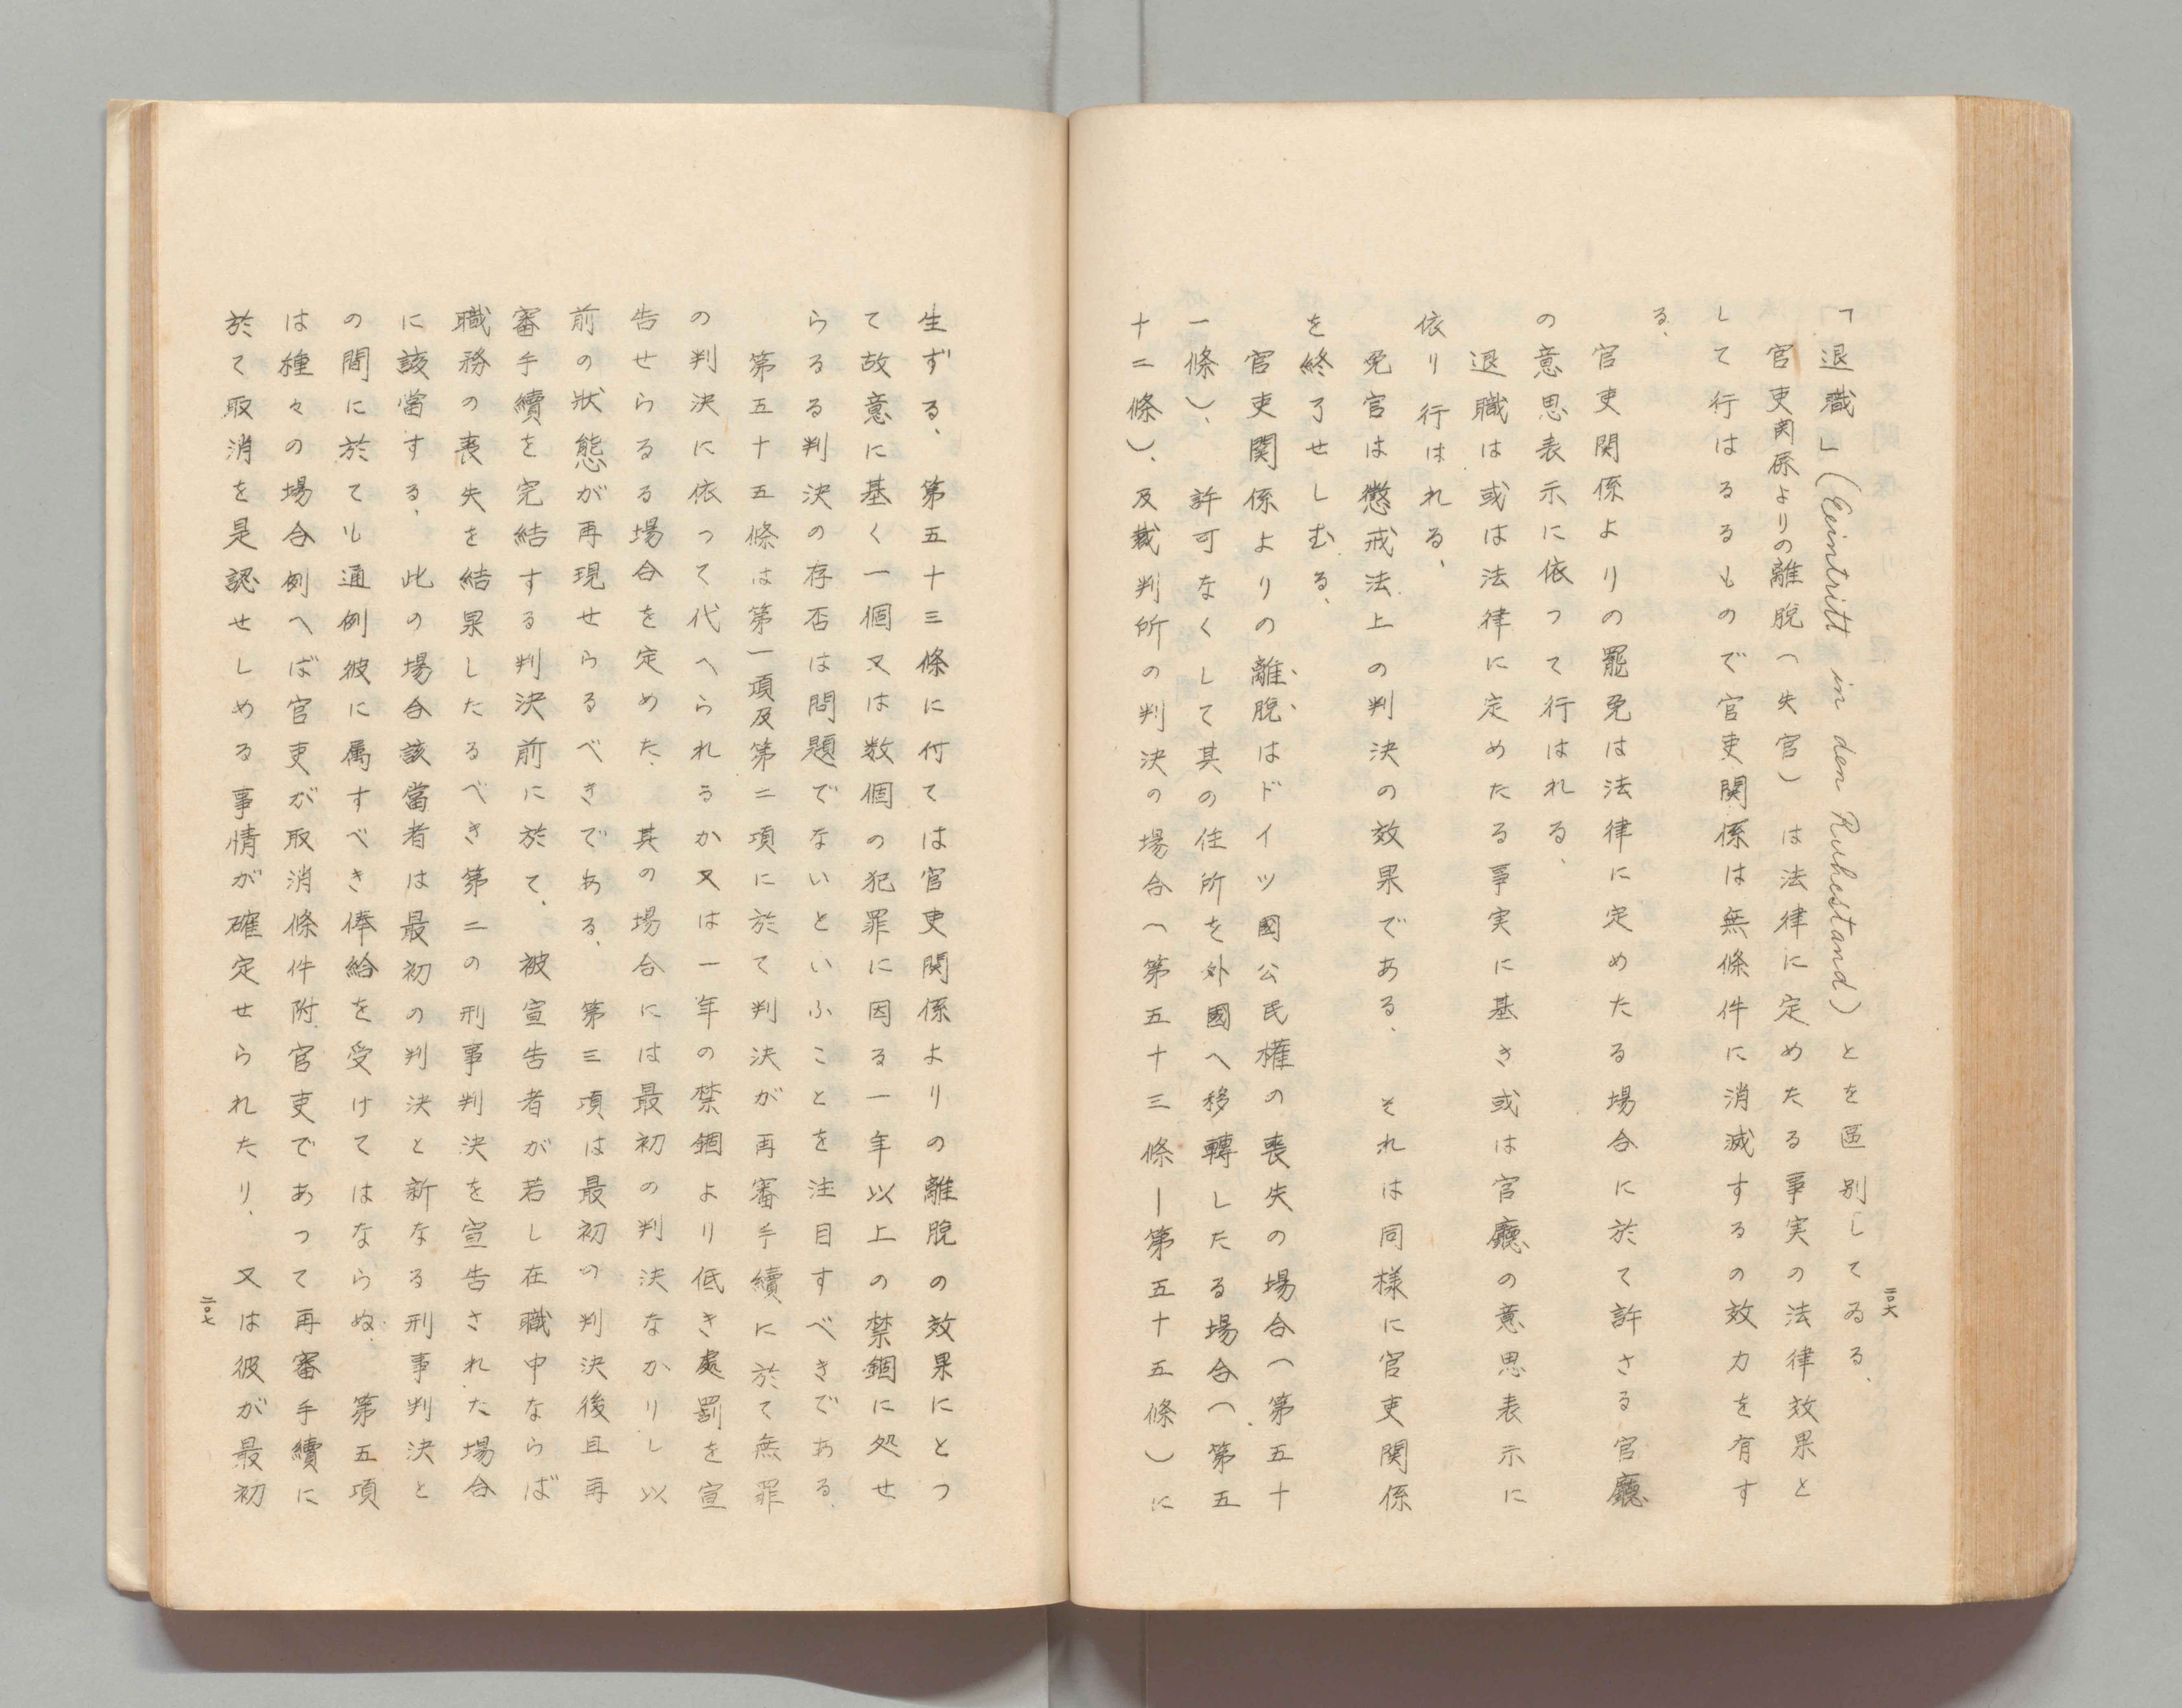 「退職」(Eintritt in den Ruhestand)とを區別してゐる、
官吏関係よりの離脱(失官)は法律に定めたる事実の法律效果と
して行はるるもので官吏関係は無條件に消滅するの效力を有す
る、
官吏関係よりの罷免は法律に定めたる場合に於て許さる官廳
の意思表示に依つて行はれる、
退職は或は法律に定めたる事実に基き或は官廳の意思表示に
依り行はれる、
免官は懲戒法上の判決の效果である、それは同様に官吏関係
を終了せしむる、
官吏関係よりの離脱はドイツ國公民權の喪失の場合(第五十
一條)、許可なくして其の住所を外國へ移轉したる場合(第五
十二條)、及裁判所の判決の場合(第五十三條—第五十五條)に
二〇六
生ずる、第五十三條に付ては官吏関係よりの離脱の效果にとつ
て故意に基く一個又は数個の犯罪に因る一年以上の禁錮に処せ
らるる判決の存否は問題でないといふことを注目すべきである、
第五十五條は第一項及第二項に於て判決が再審手續に於て無罪
の判決に依つて代へられるか又は一年の禁錮より低き處罰を宣
告せらるる場合を定めた、其の場合には最初の判決なかりし以
前の狀態が再現せらるべきである、第三項は最初の判決後且再
審手續を完結する判決前に於て、被宣告者が若し在職中ならば
職務の喪失を結果したるべき第二の刑事判決を宣告された場合
に該當する、此の場合該當者は最初の判決と新なる刑事判決と
の間に於ても通例彼に属すべき俸給を受けてはならぬ、第五項
は種々の場合例へば官吏が取消條件附官吏であつて再審手續に
於て取消を是認せしめる事情が確定せられたり、又は彼が最初
二〇七